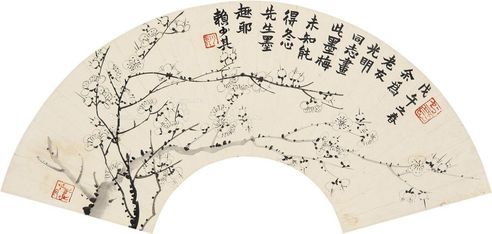 戊午立春
余為
老友
光明
同志畫
此墨梅
未知能
得冬心
先生墨
趣耶
賴少其